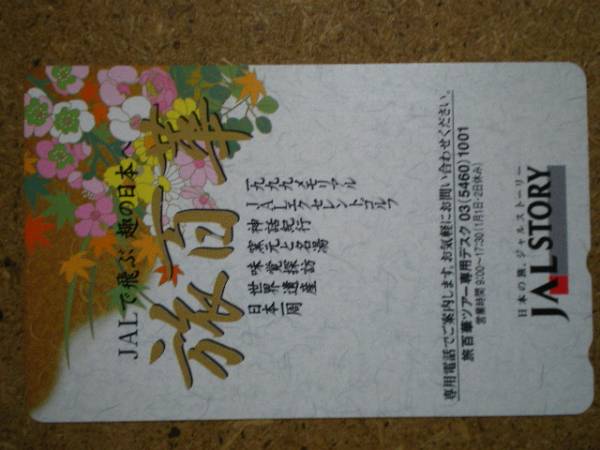 JALで飛ぶ、趣の日本へ
旅百華
一九九九メモリアル
JALエクセレントゴルフ
神話紀行
窯元と名湯
味覚探訪
世界遺産
日本一周
専用電話でご案内します。お気軽にお問い合わせください。
旅百華ツアー専用デスク 03(5460)1001
営業時間 9:00〜17:30(1月1日・2日休み)
日本の旅、ジャルストーリー
JALSTORY